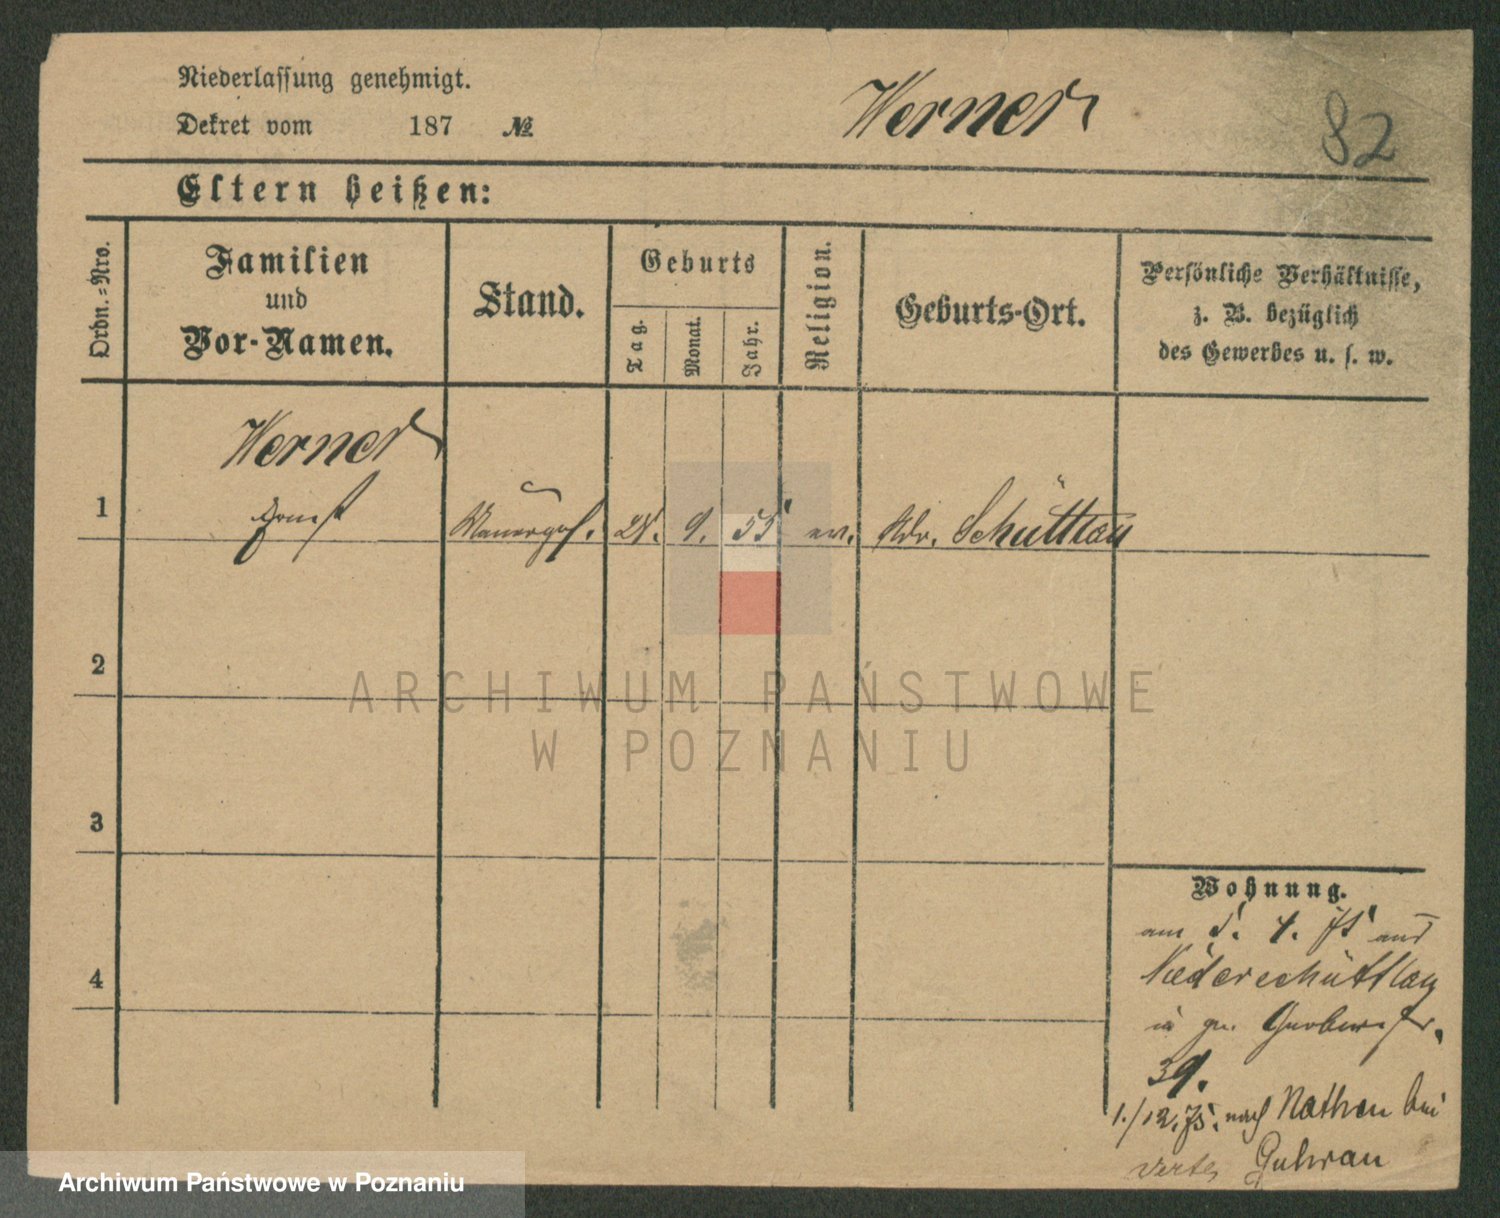 Niederlassung genehmigt.
Werner
82
Dekret vom 187 №
Eltern heißen:
Ordn.-Nro.
Familien
und
Vor-Namen.
Stand.
Geburts
Tag.
Monat.
Jahr.
Religion.
Geburts-Ort.
Persönliche Verhältnisse,
z. B. bezüglich
des Gewerbes u. s. w.
Werner
1 Ernst Maurerges. 28. 9. 55 ev. Ndr. Schüttlau
2
3
4
Wohnung.
am 5. 4. 75 aus
Niederschüttlau
in gr. Gerberstr.
39.
1./12. 75. nach Nathen bei
Guhrau
ARCHIWUM PAŃSTWOWE
W POZNANIU
Archiwum Państwowe w Poznaniu